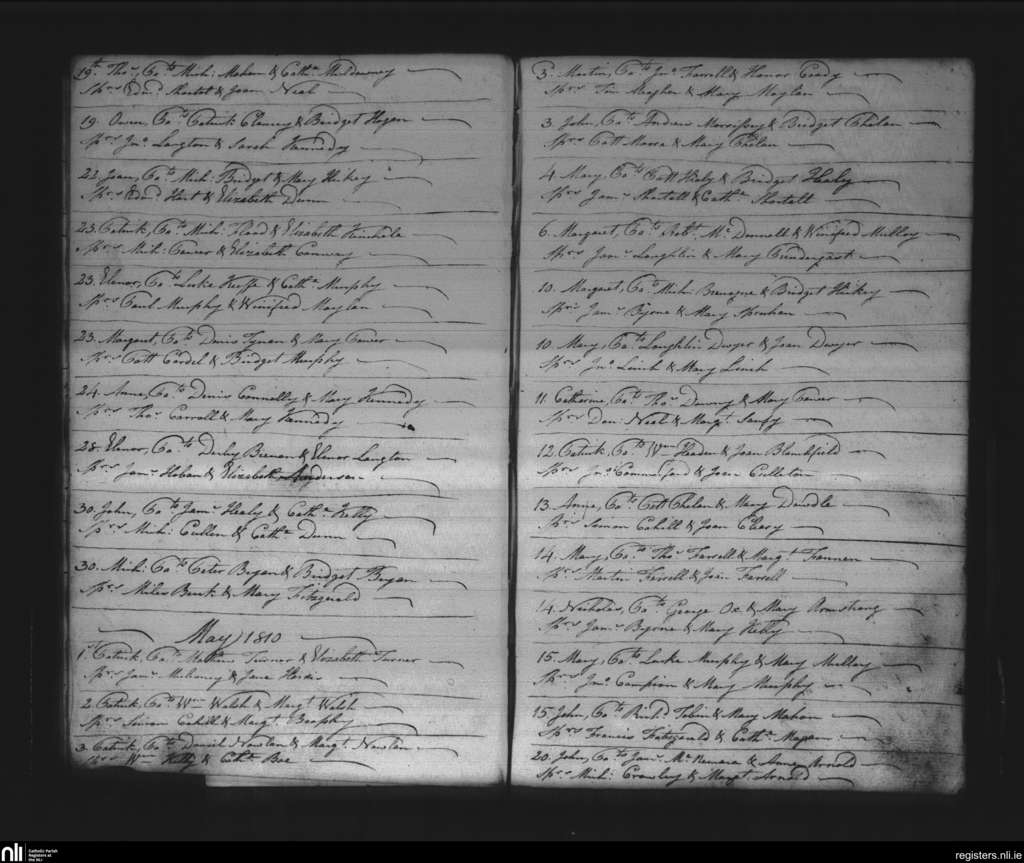 19th Thos, Co. to Mich: Mahan & Cathn Muldowney
Sprs Edmd & Joan Neal
19. Owen, Co. to Patrick Clancy & Bridget Hogan
Sprs Jno Langton & Sarah Kennedy
22. Joan, Co. to Mich: Bridget & Mary Hickey
Sprs Edmd Hart & Elizabeth Dunn
23. Patrick, Co. to Mich: & Elizabeth
Sprs Mich: & Elizabeth Conway
23. Elenor, Co. to Luke Keeffe & Cathn Murphy
Sprs Paul Murphy & Winifred
23. Margaret, Co. to Denis Tynan & Mary
Sprs Patt & Bridget Murphy
24. Anne, Co. to Denis Connelly & Mary Kennedy
Sprs Thos Carroll & Mary Kennedy
28. Elenor, Co. to Darby & Elenor Langton
Sprs Jams Hoban & Elizabeth Anderson
30. John, Co. to Jams Healy & Cathn Kelly
Sprs Mich: Cullen & Cathn Dunn
30. Mich: Co. to Peter Bryan & Bridget Bryan
Sprs Miles & Mary Fitzgerald
May 1810
1st Patrick, Co. to Mathew Turner & Elizabeth Turner
Sprs Jams Mahoney & Jane
2. Patrick, Co. to Wm Walsh & Margt Walsh
Sprs Simon Cahill & Margt Brophy
3. Patrick, Co. to Daniel Nowlan & Margt Nowlan
Sprs Wm Kelly & Cathn
3. Martin, Co. to Jno Farrell & Honor
Sprs Tim Meagher & Mary
3. John, Co. to Andrew Morrissey & Bridget Phelan
Sprs Patt Marra & Mary Phelan
4. Mary, Co. to Patt Healy & Bridget Healy
Sprs Jams Shortall & Cathn Shortall
6. Margaret, Co. to Robt McDonnell & Winifred Mullay
Sprs Jams Loughlin & Mary Prendergast
10. Margaret, Co. to Mich & Bridget Hickey
Sprs Jams Byrne & Mary
10. Mary, Co. to Loughlin Dwyer & Joan Dwyer
Sprs Jno Linch & Mary Linch
11. Catherine, Co. to Thos & Mary
Sprs Den: Neal & Margt
12. Patrick, Co. to Wm Header & Joan Blanchfield
Sprs Jno Commerford & Joan Culleton
13. Anne, Co. to Patt Phelan & Mary Dowdle
Sprs Simon Cahill & Joan Cleary
14. Mary, Co. to Thos Farrell & Margt Fannen
Sprs Martin Farrell & Joan Farrell
14. Nicholas, Co. to George & Mary Armstrong
Sprs Jams Byrne & Mary Kelly
15. Mary, Co. to Luke Murphy & Mary Mullay
Sprs Jno Campion & Mary Murphy
15. John, Co. to Richd Tobin & Mary Mahon
Sprs Francis Fitzgerald & Cathn
20. John, Co. to Jams McNamara & Anne Arnold
Sprs Mich: Crawley & Margt Arnold
nli
Catholic Parish
Registers at
the NLI
registers.nli.ie